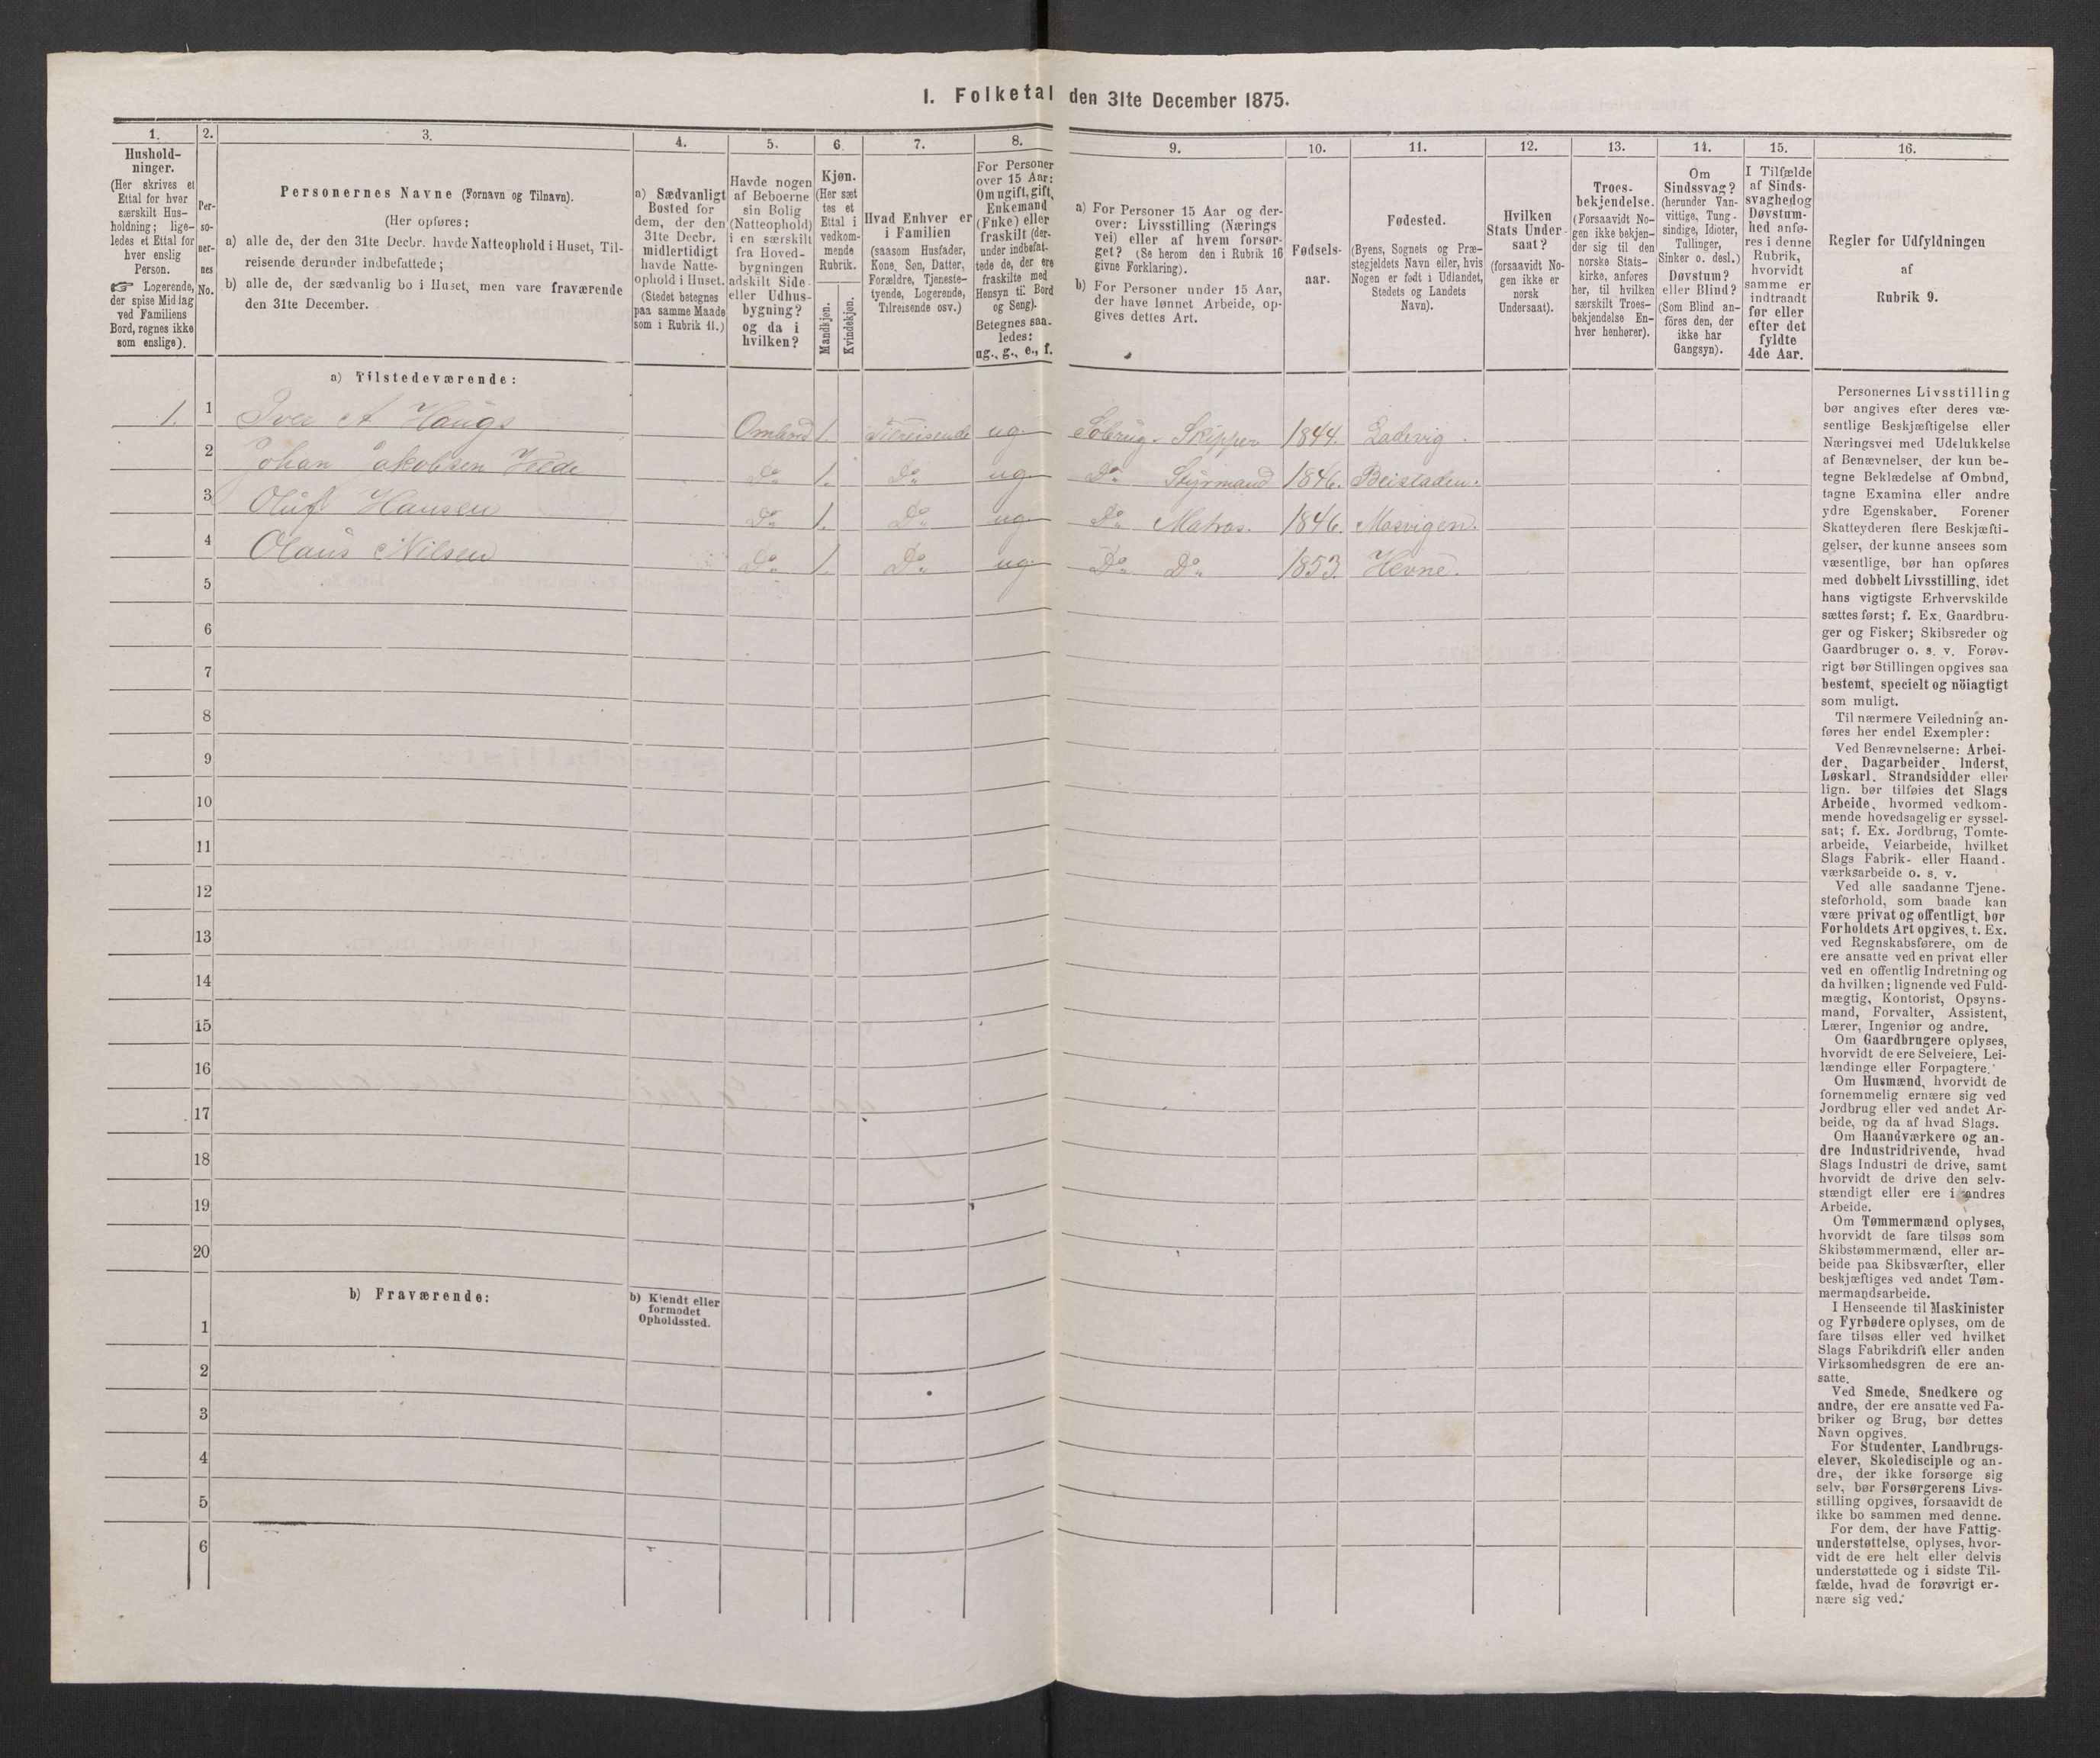 I. Folketal den 31te December 1875.
1.
Hushold-
ninger.
(Her skrives et
Ettal for hver
særskilt Hus-
holdning; lige-
ledes et Ettal for
hver enslig
Person.
☞ Logerende,
der spise Middag
ved Familiens
Bord, regnes ikke
som enslige).
2.
Per-
so-
ner-
nes
No.
3.
Personernes Navne (Fornavn og Tilnavn).
(Her opføres:
a) alle de, der den 31te Decbr. havde Natteophold i Huset, Til-
reisende derunder indbefattede;
b) alle de, der sædvanlig bo i Huset, men vare fraværende
den 31te December.
4.
a) Sædvanligt
Bosted for
dem, der den
31te Decbr.
midlertidigt
havde Natte-
ophold i Huset.
(Stedet betegnes
paa samme Maade
som i Rubrik 11.)
5.
Havde nogen
af Beboerne
sin Bolig
(Natteophold)
i en særskilt
fra Hoved-
bygningen
adskilt Side-
eller Udhus-
bygning?
og da i
hvilken?
6.
Kjøn.
(Her sæt
tes et
Ettal i
vedkom-
mende
Rubrik.
Mandkjøn.
Kvindekjøn.
7.
Hvad Enhver er
i Familien
(saasom Husfader,
Kone, Søn, Datter,
Forældre, Tjeneste-
tyende, Logerende,
Tilreisende osv.)
8.
For Personer
over 15 Aar:
Om ugift, gift,
Enkemand
(Enke) eller
fraskilt (der-
under indbefat-
tede de, der ere
fraskilte med
Hensyn til Bord
og Seng).
Betegnes saa-
ledes:
ug., g., e., f.
9.
a) For Personer 15 Aar og der-
over: Livsstilling (Nærings
vei) eller af hvem forsør-
get? (Se herom den i Rubrik 16
givne Forklaring).
b) For Personer under 15 Aar,
der have lønnet Arbeide, op-
gives dettes Art.
10.
Fødsels-
aar.
11.
Fødested.
(Byens, Sognets og Præ-
stegjeldets Navn eller, hvis
Nogen er født i Udlandet,
Stedets og Landets
Navn).
12.
Hvilken
Stats Under-
saat?
(forsaavidt No-
gen ikke er
norsk
Undersaat).
13.
Troes-
bekjendelse.
(Forsaavidt No-
gen ikke bekjen-
der sig til den
norske Stats-
kirke, anføres
her, til hvilken
særskilt Troes-
bekjendelse En-
hver henhører).
14.
Om
Sindssvag?
(herunder Van-
vittige, Tung-
sindige, Idioter,
Tullinger,
Sinker o. desl.)
Døvstum?
eller Blind?
(Som Blind an-
föres den, der
ikke har
Gangsyn).
15.
I Tilfælde
af Sinds-
svaghed og
Døvstum-
hed anfø-
res i denne
Rubrik,
hvorvidt
samme er
indtraadt
før eller
efter det
fyldte
4de Aar.
16.
Regler for Udfyldningen
af
Rubrik 9.
a) Tilstedeværende:
1. 1 Iver A Haugs Ombord 1. Tilreisende ug. Söbrug. Skipper 1844. Ladevig.
2 Johan Jakobsen Do 1. Do ug. Do Styrmand 1846. Beistaden.
3 Oluf Hansen Do 1. Do ug. Do Matros. 1846. Mosvigen.
4 Olaus Nilsen Do 1. Do ug. Do Do 1853. Hevne.
5
6
7
8
9
10
11
12
13
14
15
16
17
18
19
20
b) Fraværende:
b) Kjendt eller
formodet
Opholdssted.
1
2
3
4
5
6
Personernes Livsstilling
bør angives efter deres væ-
sentlige Beskjæftigelse eller
Næringsvei med Udelukkelse
af Benævnelser, der kun be-
tegne Beklædelse af Ombud,
tagne Examina eller andre
ydre Egenskaber. Forener
Skatteyderen flere Beskjæfti-
gelser, der kunne ansees som
væsentlige, bør han opføres
med dobbelt Livsstilling, idet
hans vigtigste Erhvervskilde
sættes først; f. Ex. Gaardbru-
ger og Fisker; Skibsreder og
Gaardbruger o. s. v. Forøv-
rigt bør Stillingen opgives saa
bestemt, specielt og nöiagtigt
som muligt.
Til nærmere Veiledning an-
føres her endel Exempler:
Ved Benævnelserne: Arbei-
der, Dagarbeider, Inderst,
Løskarl, Strandsidder eller
lign. bør tilføies det Slags
Arbeide, hvormed vedkom-
mende hovedsagelig er syssel-
sat; f. Ex. Jordbrug, Tomte-
arbeide, Veiarbeide, hvilket
Slags Fabrik- eller Haand-
værksarbeide o. s. v.
Ved alle saadanne Tjene-
steforhold, som baade kan
være privat og offentligt, bør
Forholdets Art opgives, t. Ex.
ved Regnskabsførere, om de
ere ansatte ved en privat eller
ved en offentlig Indretning og
da hvilken; lignende ved Fuld-
mægtig, Kontorist, Opsyns-
mand, Forvalter, Assistent,
Lærer, Ingeniør og andre.
Om Gaardbrugere oplyses,
hvorvidt de ere Selveiere, Lei-
lændinge eller Forpagtere.
Om Husmænd, hvorvidt de
fornemmelig ernære sig ved
Jordbrug eller ved andet Ar-
beide, og da af hvad Slags.
Om Haandværkere og an-
dre Industridrivende, hvad
Slags Industri de drive, samt
hvorvidt de drive den selv-
stændigt eller ere i andres
Arbeide.
Om Tømmermænd oplyses,
hvorvidt de fare tilsøs som
Skibstømmermænd, eller ar-
beide paa Skibsværfter, eller
beskjæftiges ved andet Tøm-
mermandsarbeide.
I Henseende til Maskinister
og Fyrbødere oplyses, om de
fare tilsøs eller ved hvilket
Slags Fabrikdrift eller anden
Virksomhedsgren de ere an-
satte.
Ved Smede, Snedkere og
andre, der ere ansatte ved Fa-
briker og Brug, bør dettes
Navn opgives.
For Studenter, Landbrugs-
elever, Skoledisciple og an-
dre, der ikke forsørge sig
selv, bør Forsørgerens Livs-
stilling opgives, forsaavidt de
ikke bo sammen med denne.
For dem, der have Fattig-
understøttelse, oplyses, hvor-
vidt de ere helt eller delvis
understøttede og i sidste Til-
fælde, hvad de forøvrigt er-
nære sig ved.